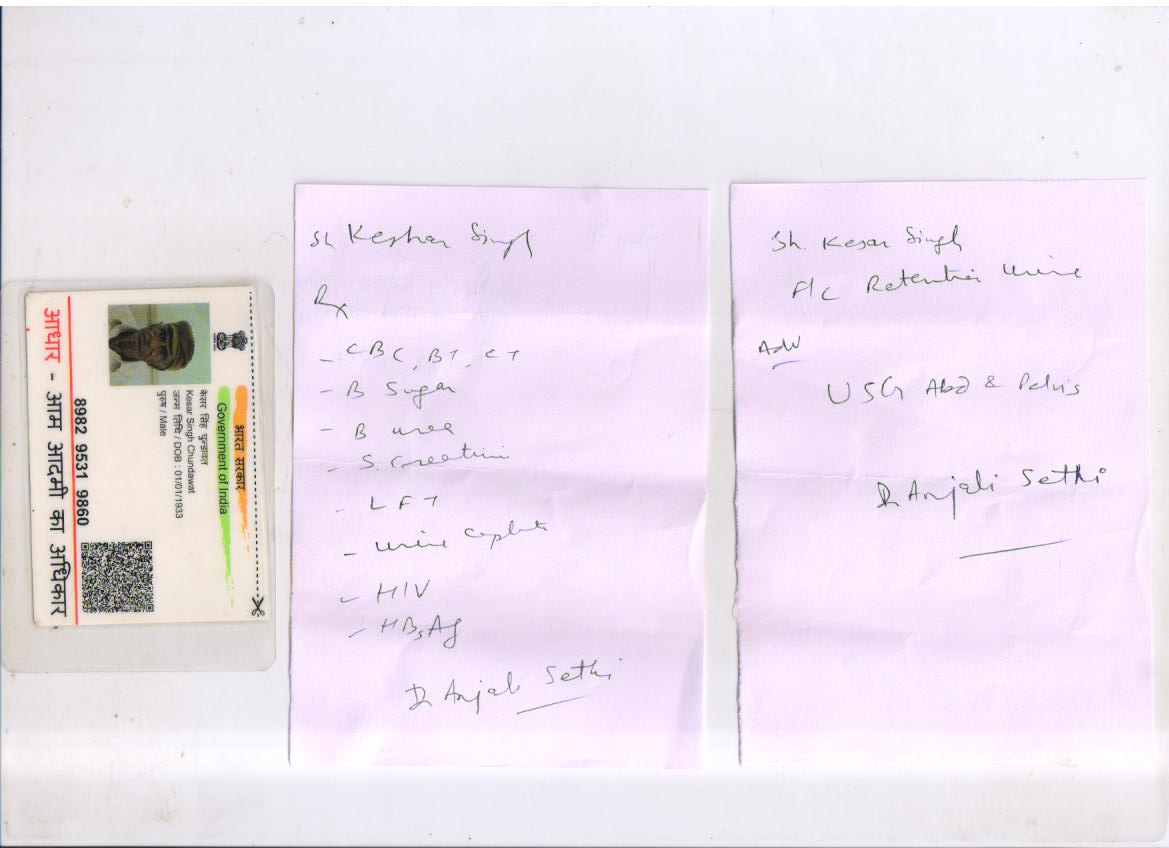 भारत सरकार
Government of India
केसर सिंह चुन्डावत
Kesar Singh Chundawat
जन्म तिथि / DOB : 01/01/1933
पुरुष / Male
8982 9531 9860
आधार - आम आदमी का अधिकार
Sh Keshar Singh
Rx
- CBC, BT, CT
- B Sugar
- B urea
- S. Creatinin
- LFT
- Urine Complete
- HIV
- HBsAg
Dr Anjali Sethi
Sh. Kesar Singh
F/C Retention Urine
Adv
USG Abd & Pelvis
Dr Anjali Sethi